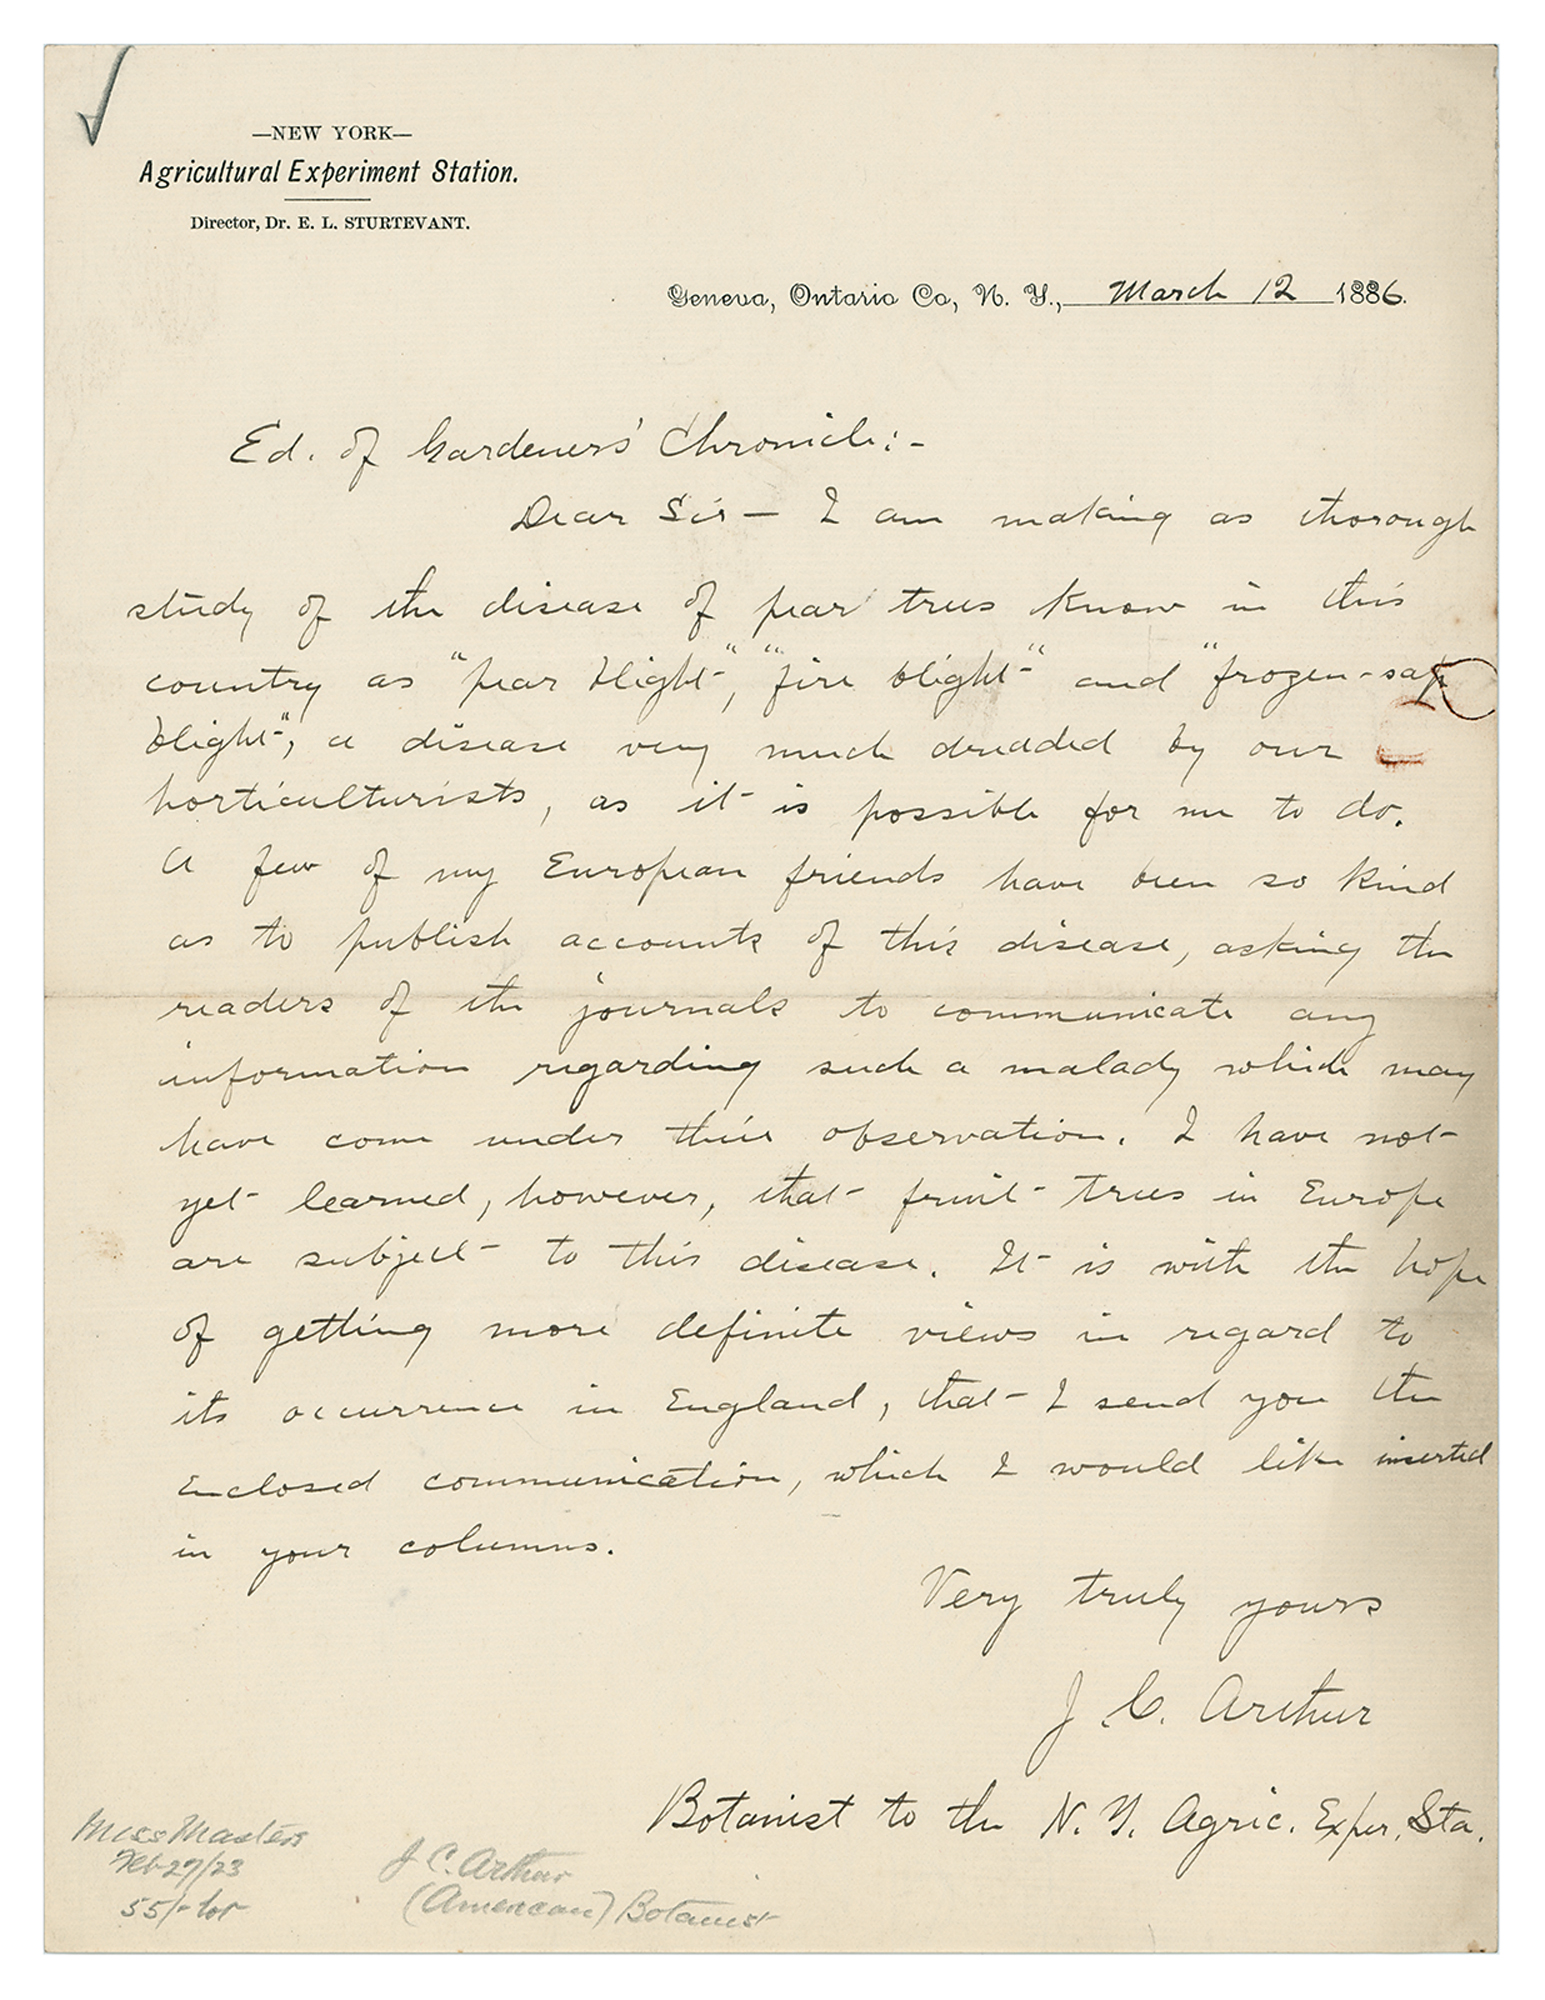 —NEW YORK—
Agricultural Experiment Station.
Director, Dr. E. L. STURTEVANT.
Geneva, Ontario Co, N. Y., March 12 1886.
Ed. of Gardeners' Chronicle:-
Dear Sir — I am making as thorough
study of the disease of pear trees know in this
country as "pear blight", "fire blight" and "frozen-sap
blight", a disease very much dreaded by our
horticulturists, as it is possible for me to do.
A few of my European friends have been so kind
as to publish accounts of this disease, asking the
readers of the journals to communicate any
information regarding such a malady which may
have come under their observation. I have not
yet learned, however, that fruit trees in Europe
are subject to this disease. It is with the hope
of getting more definite views in regard to
its occurrence in England, that I send you the
enclosed communication, which I would like inserted
in your columns.
Very truly yours
J. C. Arthur
Botanist to the N. Y. Agric. Exper. Sta.
Miss Masters
Feb 27/23
55/- lot
J C. Arthur
(American) Botanist